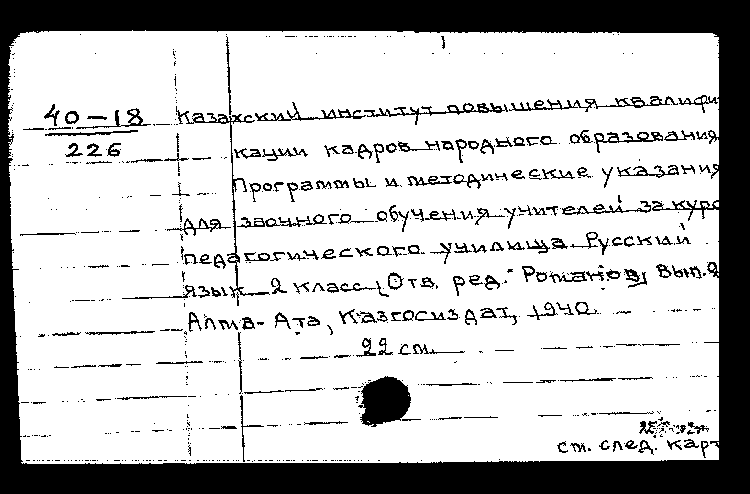 40-18 Казахский институт повышения квалифи
226 кации кадров народного образования
Программы и методические указания
для заочного обучения учителей за курс
педагогического училища. Русский
язык 2 класс [Отв. ред. Романов, Вып. 2
Алма-Ата, Казгосиздат, 1940.
22 ст.
ст. след. карт